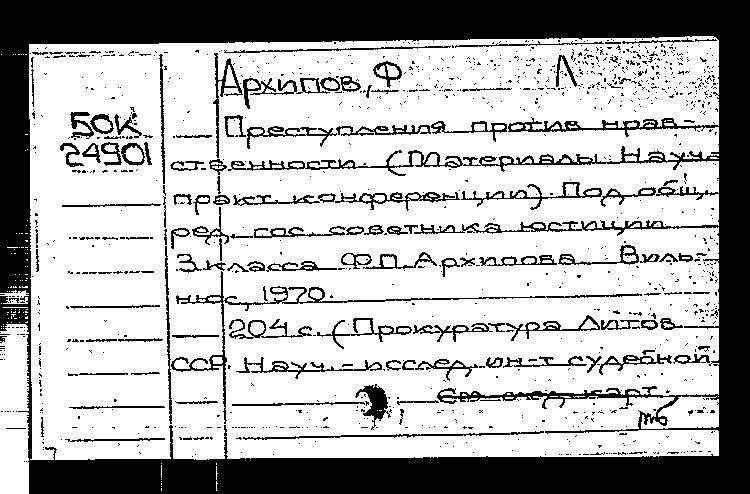 Архипов, Ф Л
50К
24901
Преступления против нрав-
ственности. (Материалы Науч-
практ. конференции). Под общ.
ред. гос. советника юстиции
3 класса Ф.П. Архипова. Виль-
нюс, 1970.
204 с. (Прокуратура Литов
ССР. Науч.-исслед. ин-т судебной
См след карт.